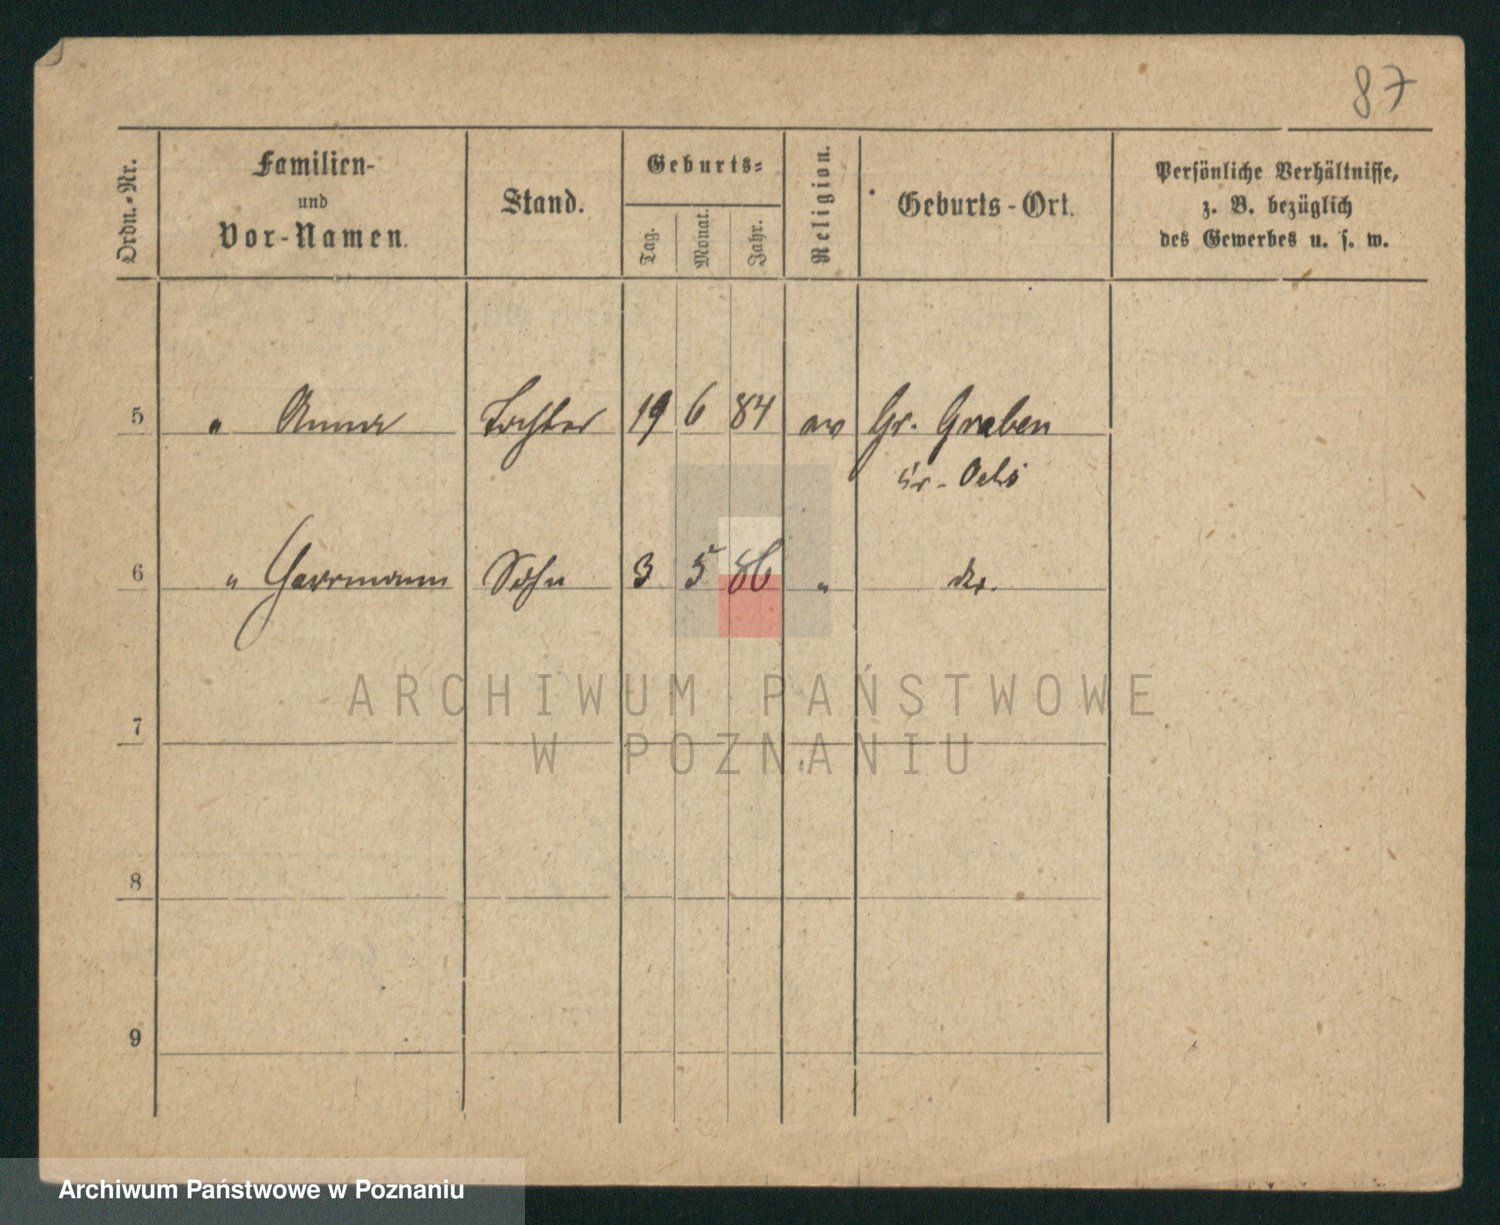 87
Ordn.-Nr.
Familien-
und
Vor-Namen.
Stand.
Geburts-
Tag.
Monat.
Jahr.
Religion.
Geburts-Ort.
Persönliche Verhältnisse,
z. B. bezüglich
des Gewerbes u. s. w.
5 " Anna Tochter 19 6 84 ev Gr. Graben
Kr. Oels
6 " Herrmann Sohn 3 5 86 " do.
7
8
9
ARCHIWUM PAŃSTWOWE
W POZNANIU
Archiwum Państwowe w Poznaniu